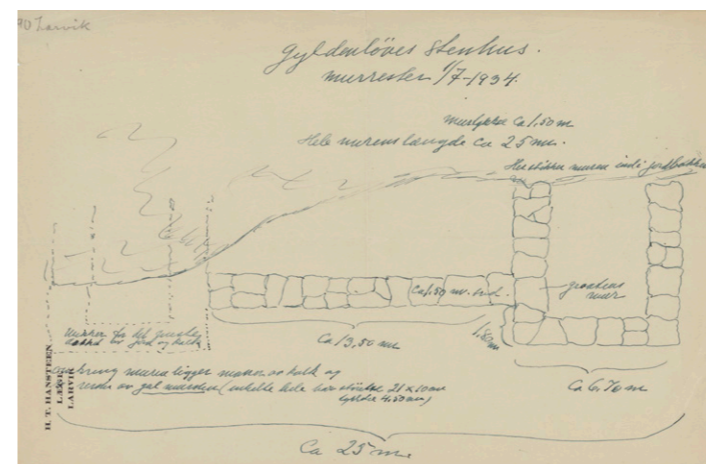 Larvik
Gyldenlöves Stenhus.
murrester 1/7-1934.
murtykkelse Ca 1,50 m
Hele murens længde Ca 25 m.
Her stikker muren ind i jordbakken
Ca 1,50 m.
gråstens
mur
1,50 m
Murrester for det meste
dækket av jord og kalk
Ca 13,50 m
Ca 6,70 m
omkring muren ligger masse av kalk og
rester av gul mursten (enkelte hele har størrelse 21 x 10 cm
tykkelse 4.50 cm)
H. T. HANSTEEN
LÆGE
LARVIK
Ca 25 m.